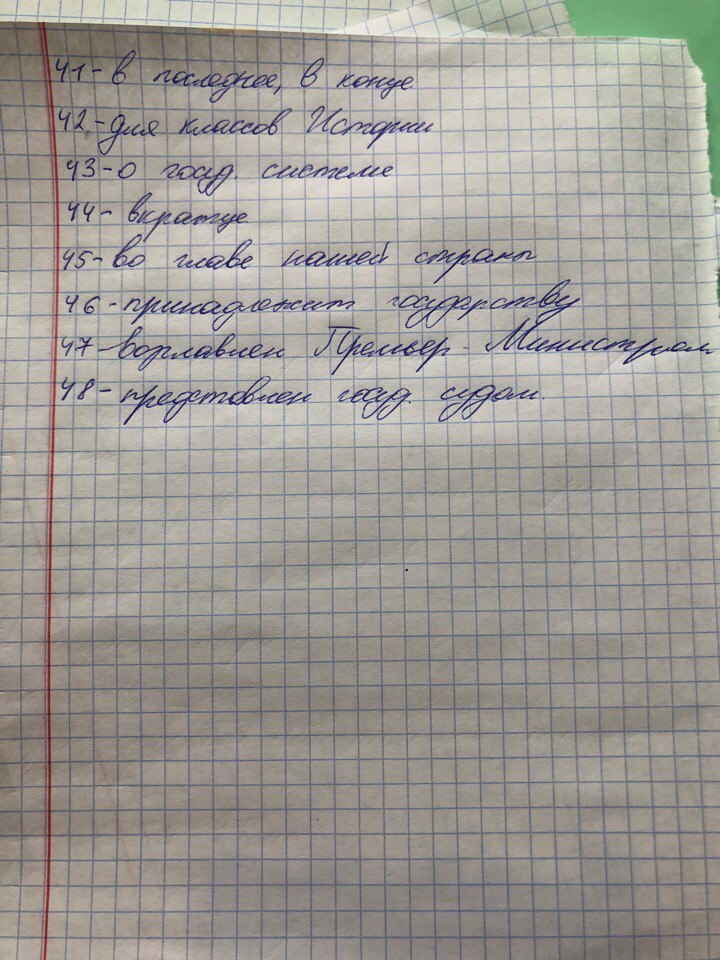 41-в последнее, в конце
42-для классов Истории
43-о госуд. системе
44-вкратце
45-во главе нашей страны
46-принадлежит государству
47-возглавлен Премьер-Министром
48-представлен госуд. судом.